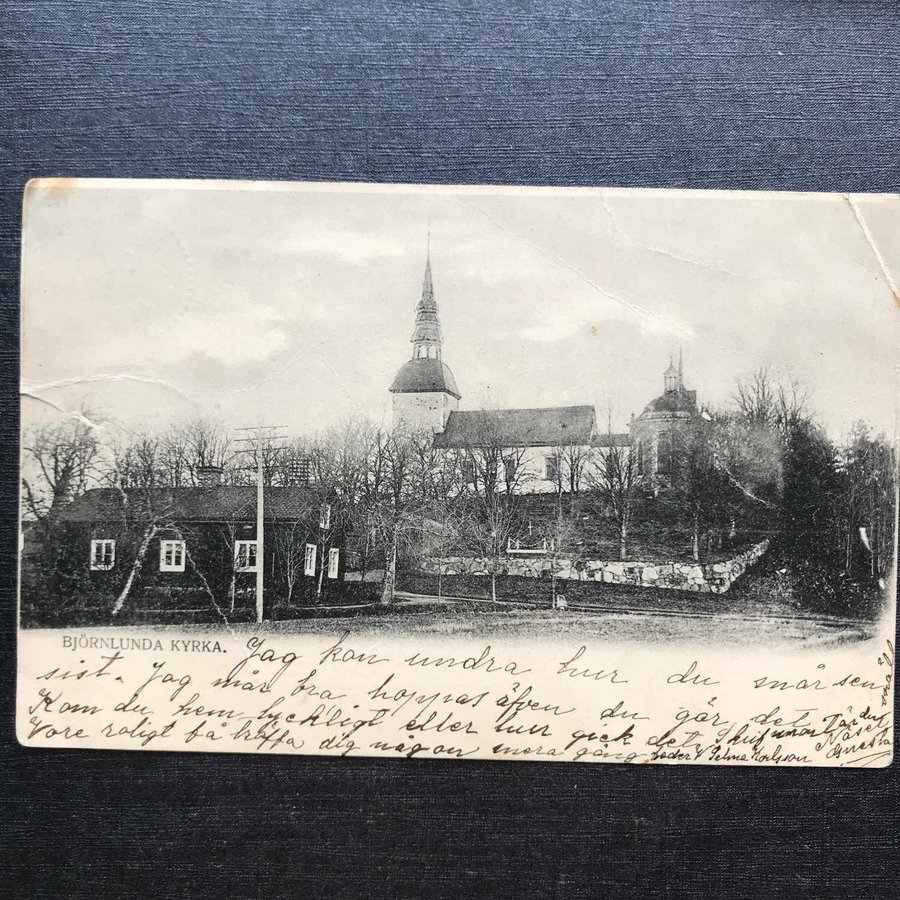 BJÖRNLUNDA KYRKA.
Jag kan undra hur du mår sen
sist. Jag mår bra hoppas äfven du gör det
Kom du hem lyckligt eller hur gick det. Skrif snart
Vore roligt få träffa dig någon mera gång
Selma Karlsson
Gnesta